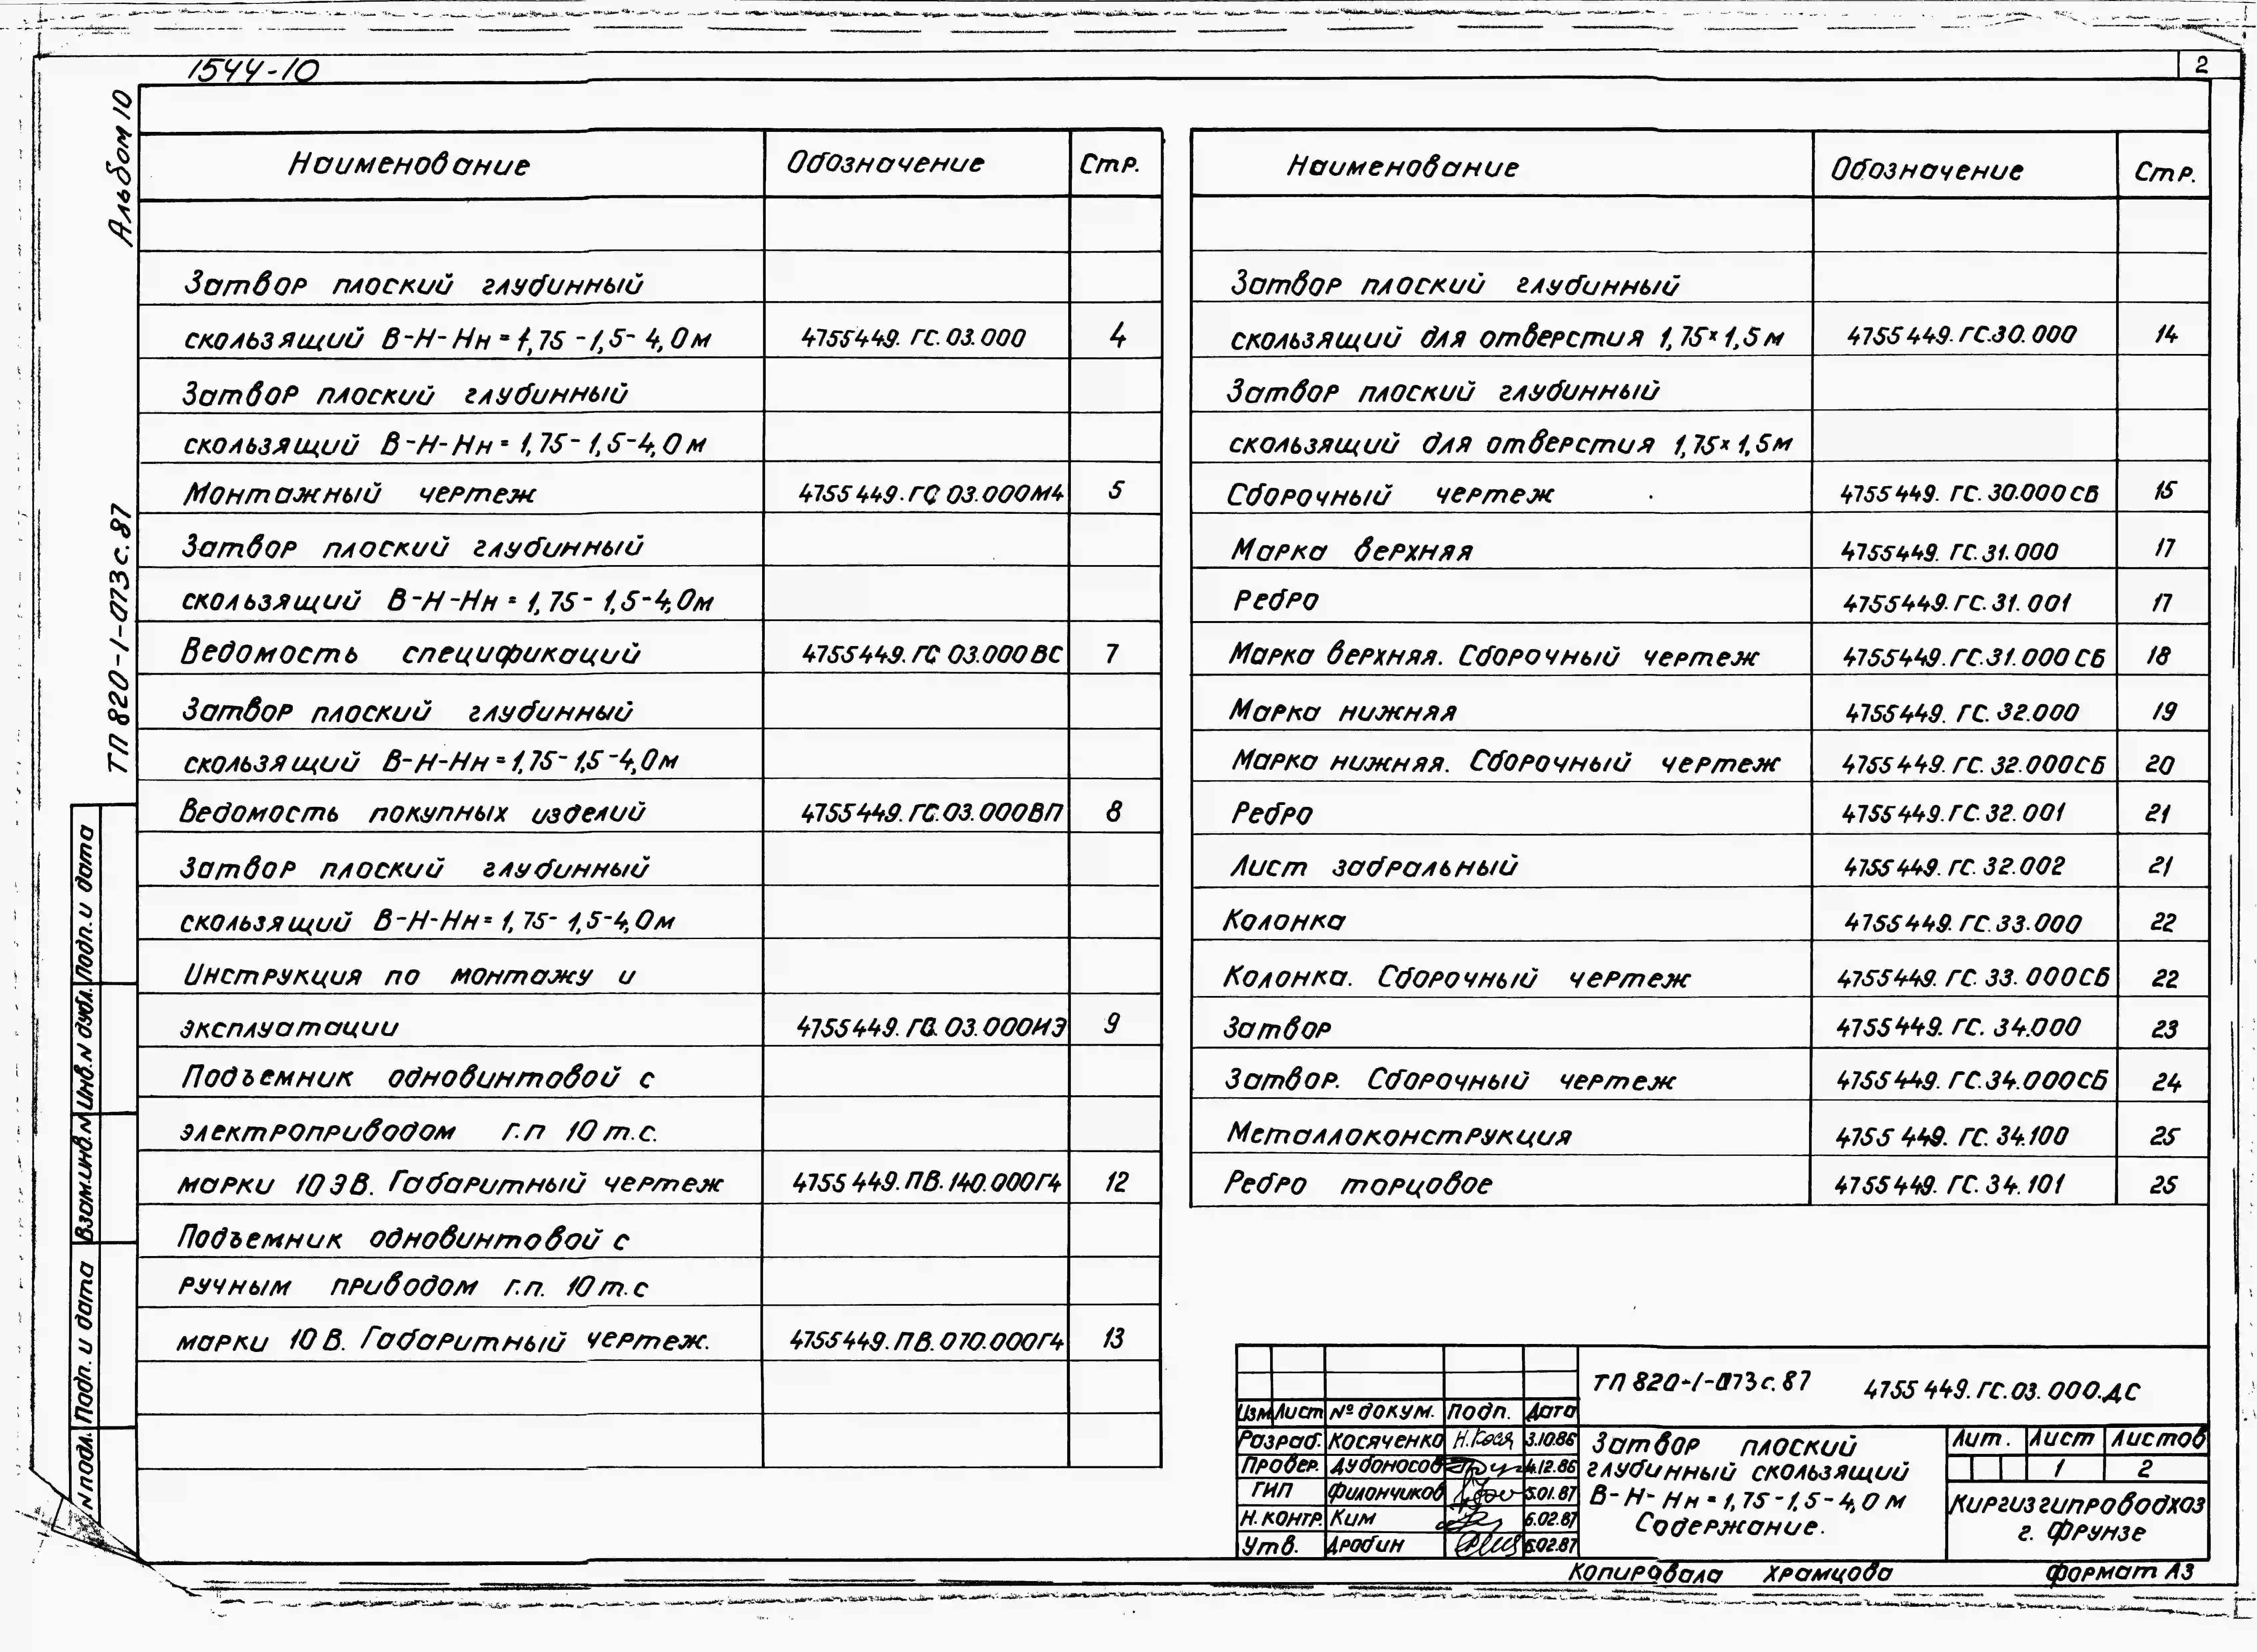 1544-10
2
Альбом 10
ТП 820-1-073с.87
Наименование Обозначение Стр.
Затвор плоский глубинный
скользящий В-Н-Нн=1,75-1,5-4,0м 4755449.ГС.03.000 4
Затвор плоский глубинный
скользящий В-Н-Нн=1,75-1,5-4,0м
Монтажный чертеж 4755449.ГС 03.000МЧ 5
Затвор плоский глубинный
скользящий В-Н-Нн=1,75-1,5-4,0м
Ведомость спецификаций 4755449.ГС 03.000ВС 7
Затвор плоский глубинный
скользящий В-Н-Нн=1,75-1,5-4,0м
Ведомость покупных изделий 4755449.ГС.03.000ВП 8
Затвор плоский глубинный
скользящий В-Н-Нн=1,75-1,5-4,0м
Инструкция по монтажу и
эксплуатации 4755449.ГС.03.000ИЭ 9
Подъемник одновинтовой с
электроприводом г.п 10 т.с.
марки 10ЭВ. Габаритный чертеж 4755449.ПВ.140.000ГЧ 12
Подъемник одновинтовой с
ручным приводом г.п. 10 т.с
марки 10 В. Габаритный чертеж. 4755449.ПВ.070.000ГЧ 13
Наименование Обозначение Стр.
Затвор плоский глубинный
скользящий для отверстия 1,75×1,5м 4755449.ГС.30.000 14
Затвор плоский глубинный
скользящий для отверстия 1,75×1,5м
Сборочный чертеж 4755449.ГС.30.000СБ 15
Марка верхняя 4755449.ГС.31.000 17
Ребро 4755449.ГС.31.001 17
Марка верхняя. Сборочный чертеж 4755449.ГС.31.000СБ 18
Марка нижняя 4755449.ГС.32.000 19
Марка нижняя. Сборочный чертеж 4755449.ГС.32.000СБ 20
Ребро 4755449.ГС.32.001 21
Лист забральный 4755449.ГС.32.002 21
Колонка 4755449.ГС.33.000 22
Колонка. Сборочный чертеж 4755449.ГС.33.000СБ 22
Затвор 4755449.ГС.34.000 23
Затвор. Сборочный чертеж 4755449.ГС.34.000СБ 24
Металлоконструкция 4755449.ГС.34.100 25
Ребро торцовое 4755449.ГС.34.101 25
Подп. и дата
Инв.N дубл.
Взам.инв.N
Подп. и дата
N подл.
ТП 820-1-073с.87 4755449.ГС.03.000.ДС
Изм Лист № докум. Подп. Дата
Разраб. Косяченко Н.Кося 3.10.86
Провер. Дубоносов 4.12.86
ГИП Филончиков 5.01.87
Н.контр. Ким 6.02.87
Утв. Дробин 6.02.87
Затвор плоский
глубинный скользящий
В-Н-Нн=1,75-1,5-4,0 м
Содержание.
Лит. Лист Листов
1 2
Киргизгипроводхоз
г. Фрунзе
Копировала Храмцова формат А3